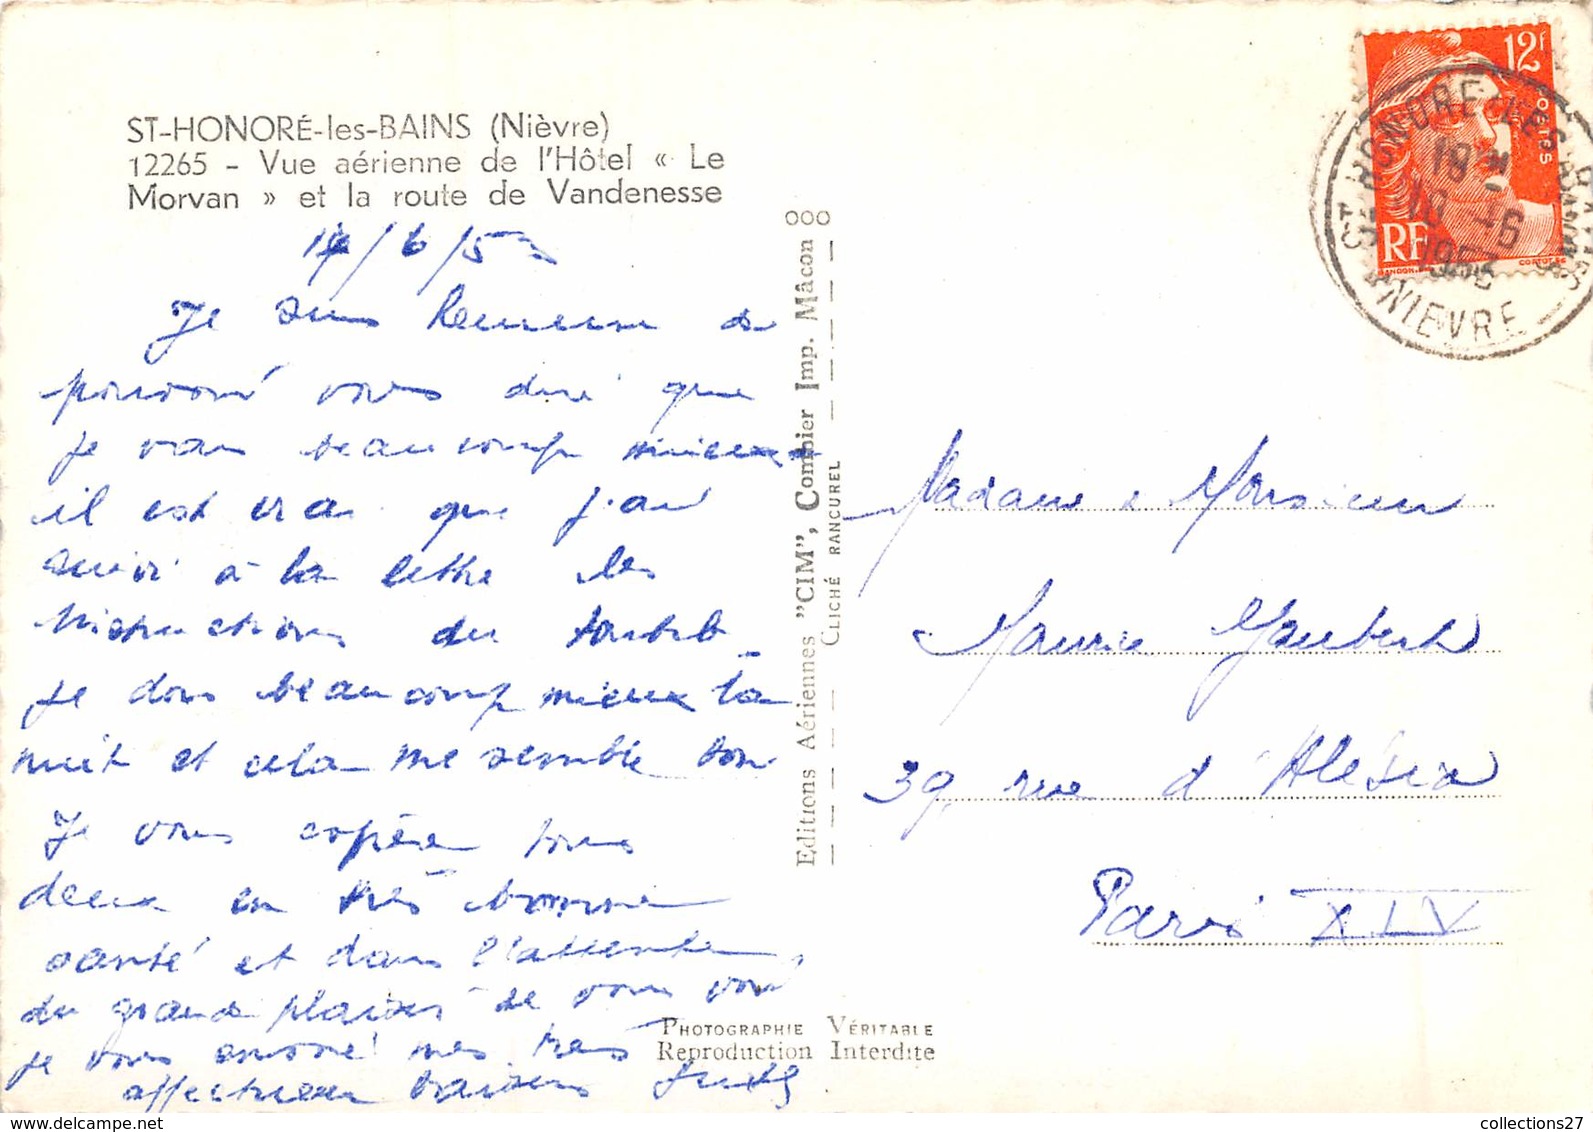 ST-HONORÉ-les-BAINS (Nièvre)
12265 - Vue aérienne de l'Hôtel « Le
Morvan » et la route de Vandenesse
/6/53
Je suis heureuse de
pouvoir vous dire que
je vais beaucoup mieux
il est vrai que j'ai
suivi à la lettre les
instructions du
je dors beaucoup mieux la
nuit et cela me semble bon
Je vous espère tous
deux en très bonne
santé et dans l'attente
du grand plaisir de vous voir
je vous envoie mes très
affectueux baisers
000
Editions Aériennes "CIM", Combier Imp. Mâcon
CLICHÉ RANCUREL
PHOTOGRAPHIE VÉRITABLE
Reproduction Interdite
12f
POSTES
RF
GANDON
CORTOT SC
ST HONORE-LES-BAINS
18 H
16 -6
1953
NIEVRE
Madame e Monsieur
Maurice Gaubert
39, rue d'Alésia
Paris XIV
collections27